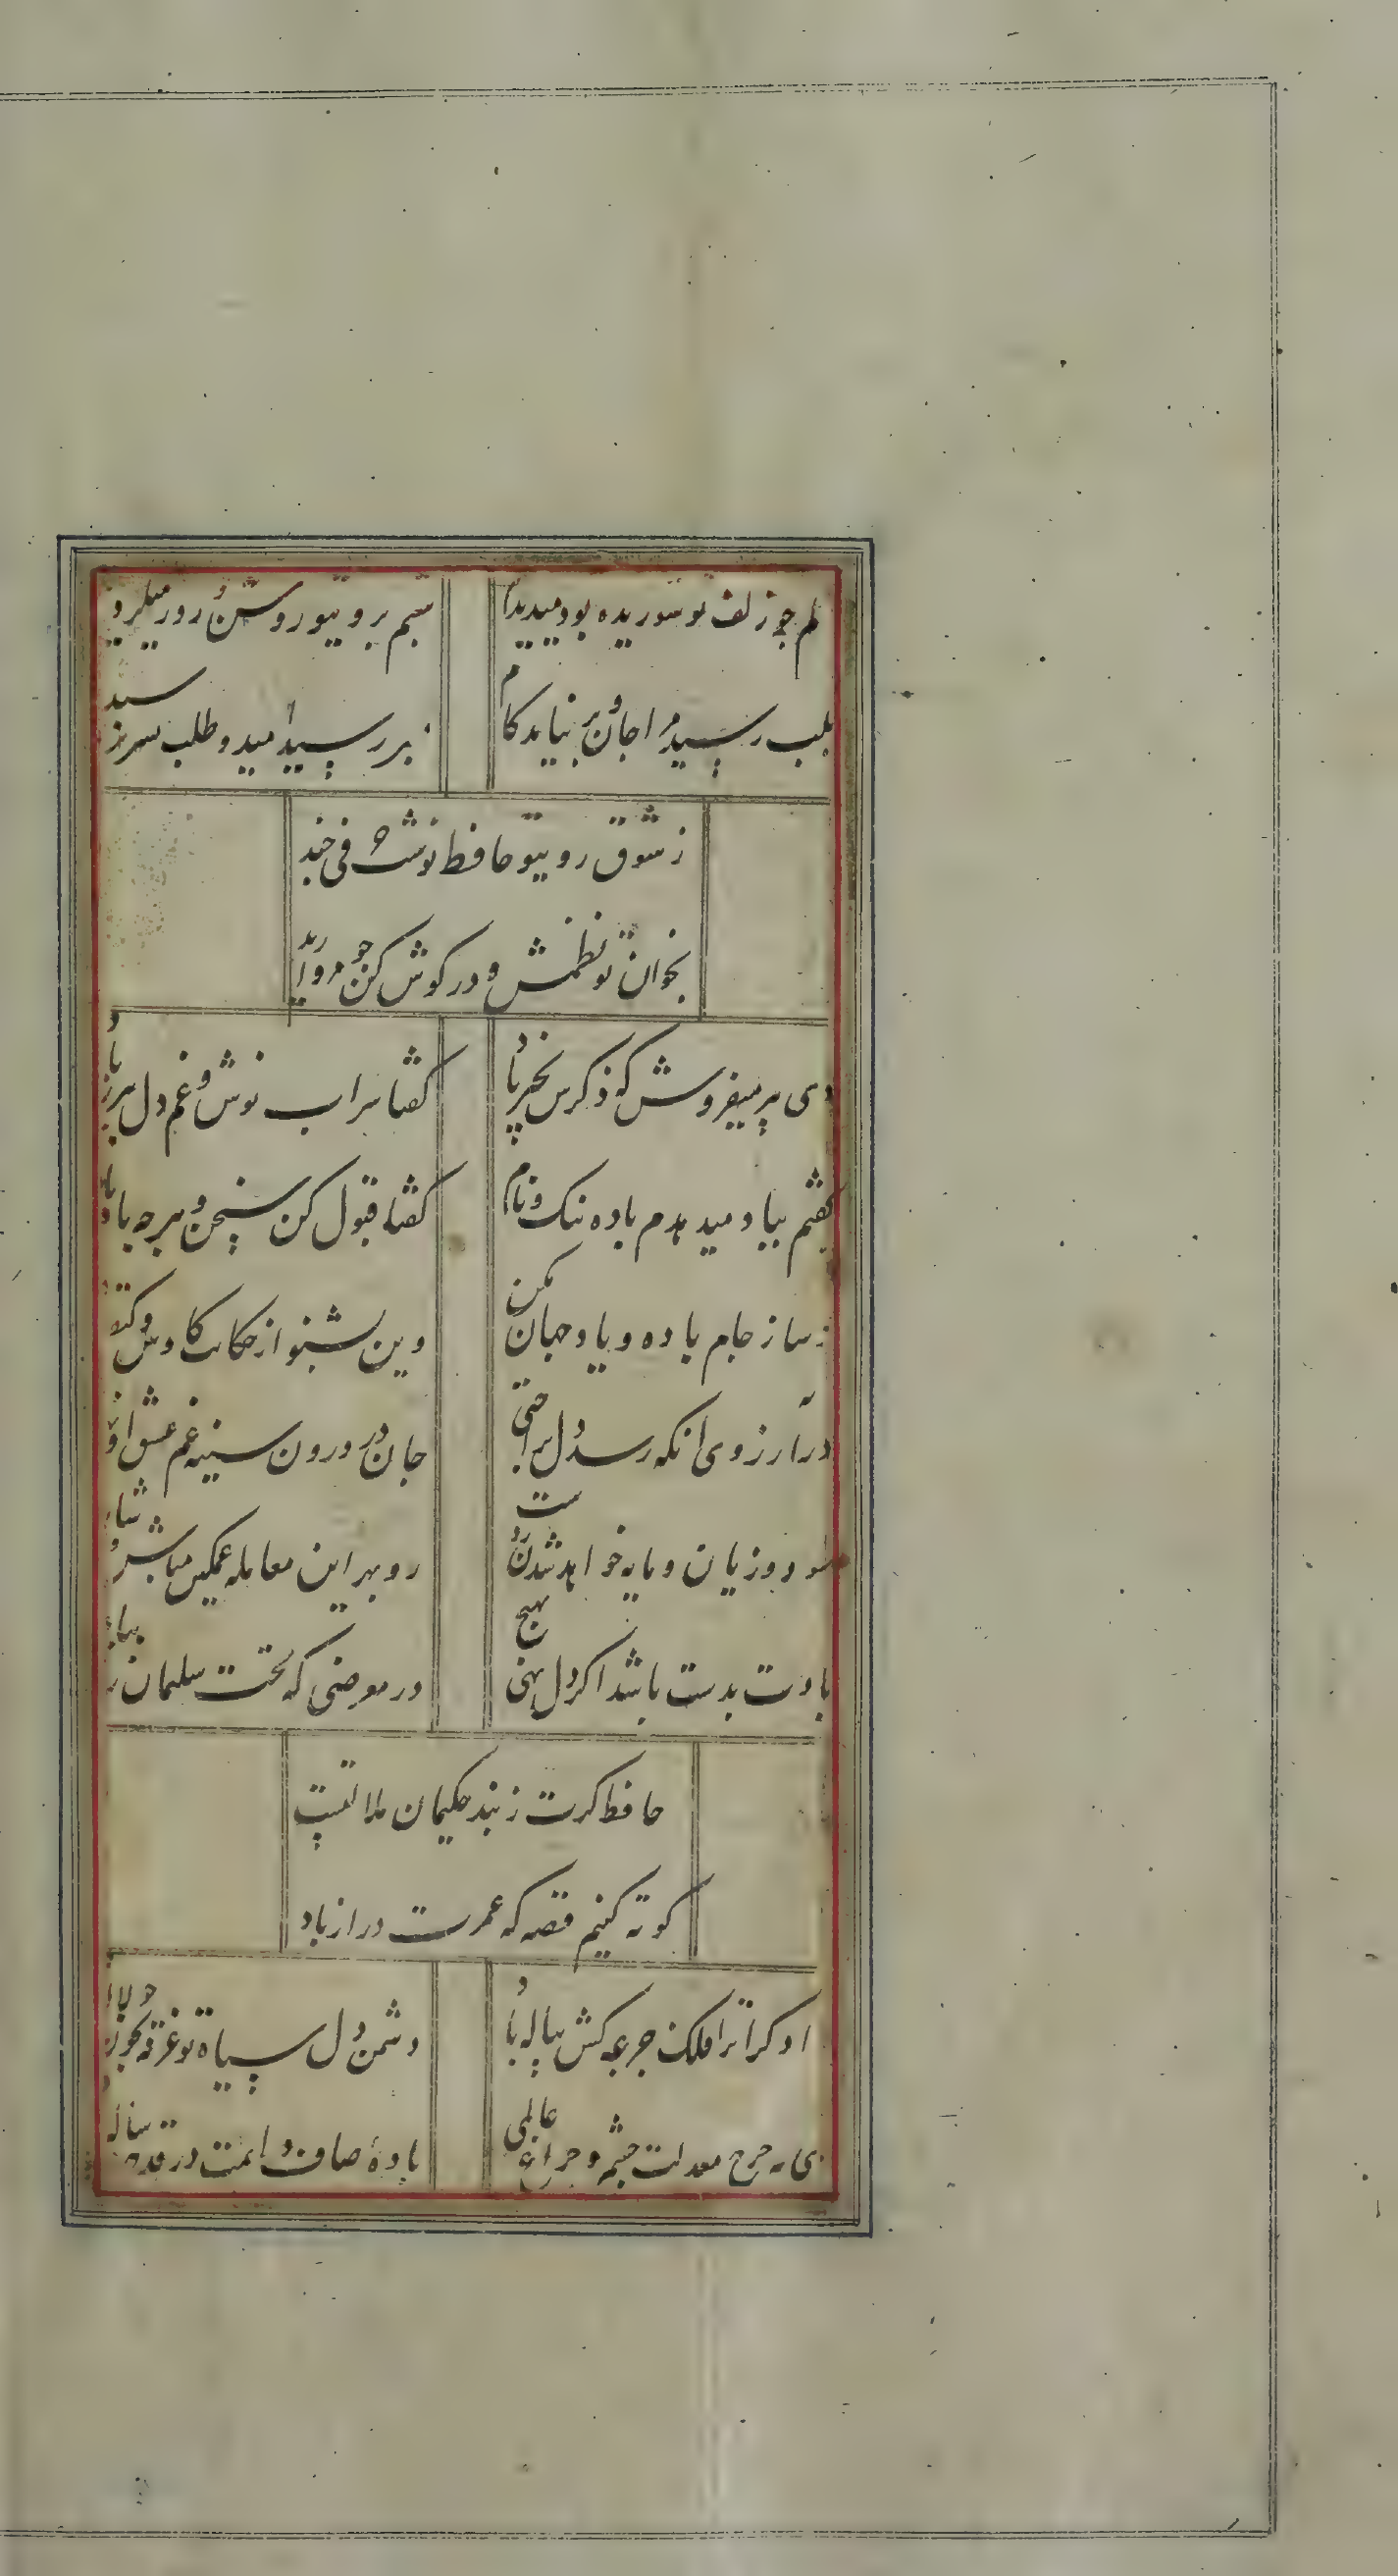 دلم چو زلف تو شوریده بود میدیدم شبم بروی تو روشن و روز میگردید
بلب رسید مرا جان و بر نیامد کام بسر رسید امید و طلب بسر نرسید
ز شوق روی تو حافظ نوشت حرفی چند
بخوان تو نظمش و در گوش کن چو مروارید
دی پیر میفروش که ذکرش بخیر باد گفتا شراب نوش و غم دل ببر ز یاد
گفتم بباد میدهدم باده ننگ و نام گفتا قبول کن سخن و هرچه باد باد
بستان ز جام باده و یاد جهان مکن وین بشنو از حکایت کاوس و کیقباد
در آرزوی آنکه رسد دل براحتی جان در درون سینه غم عشق او
سود و زیان و مایه خواهد شدن ز دست رو بهر این معامله غمگین مباش و شاد
بادت بدست باشد اگر دل نهی بهیچ در معرضی که تخت سلیمان رود بباد
حافظ گرت ز پند حکیمان ملالتست
کوته کنیم قصه که عمرت دراز باد
دادگرا ترا فلک جرعه کش پیاله باد دشمن دل سیاه تو غرقه بخون چو لاله باد
ای مه چرخ معدلت چشم و چراغ عالمی باده صاف دایمت در قدح و پیاله